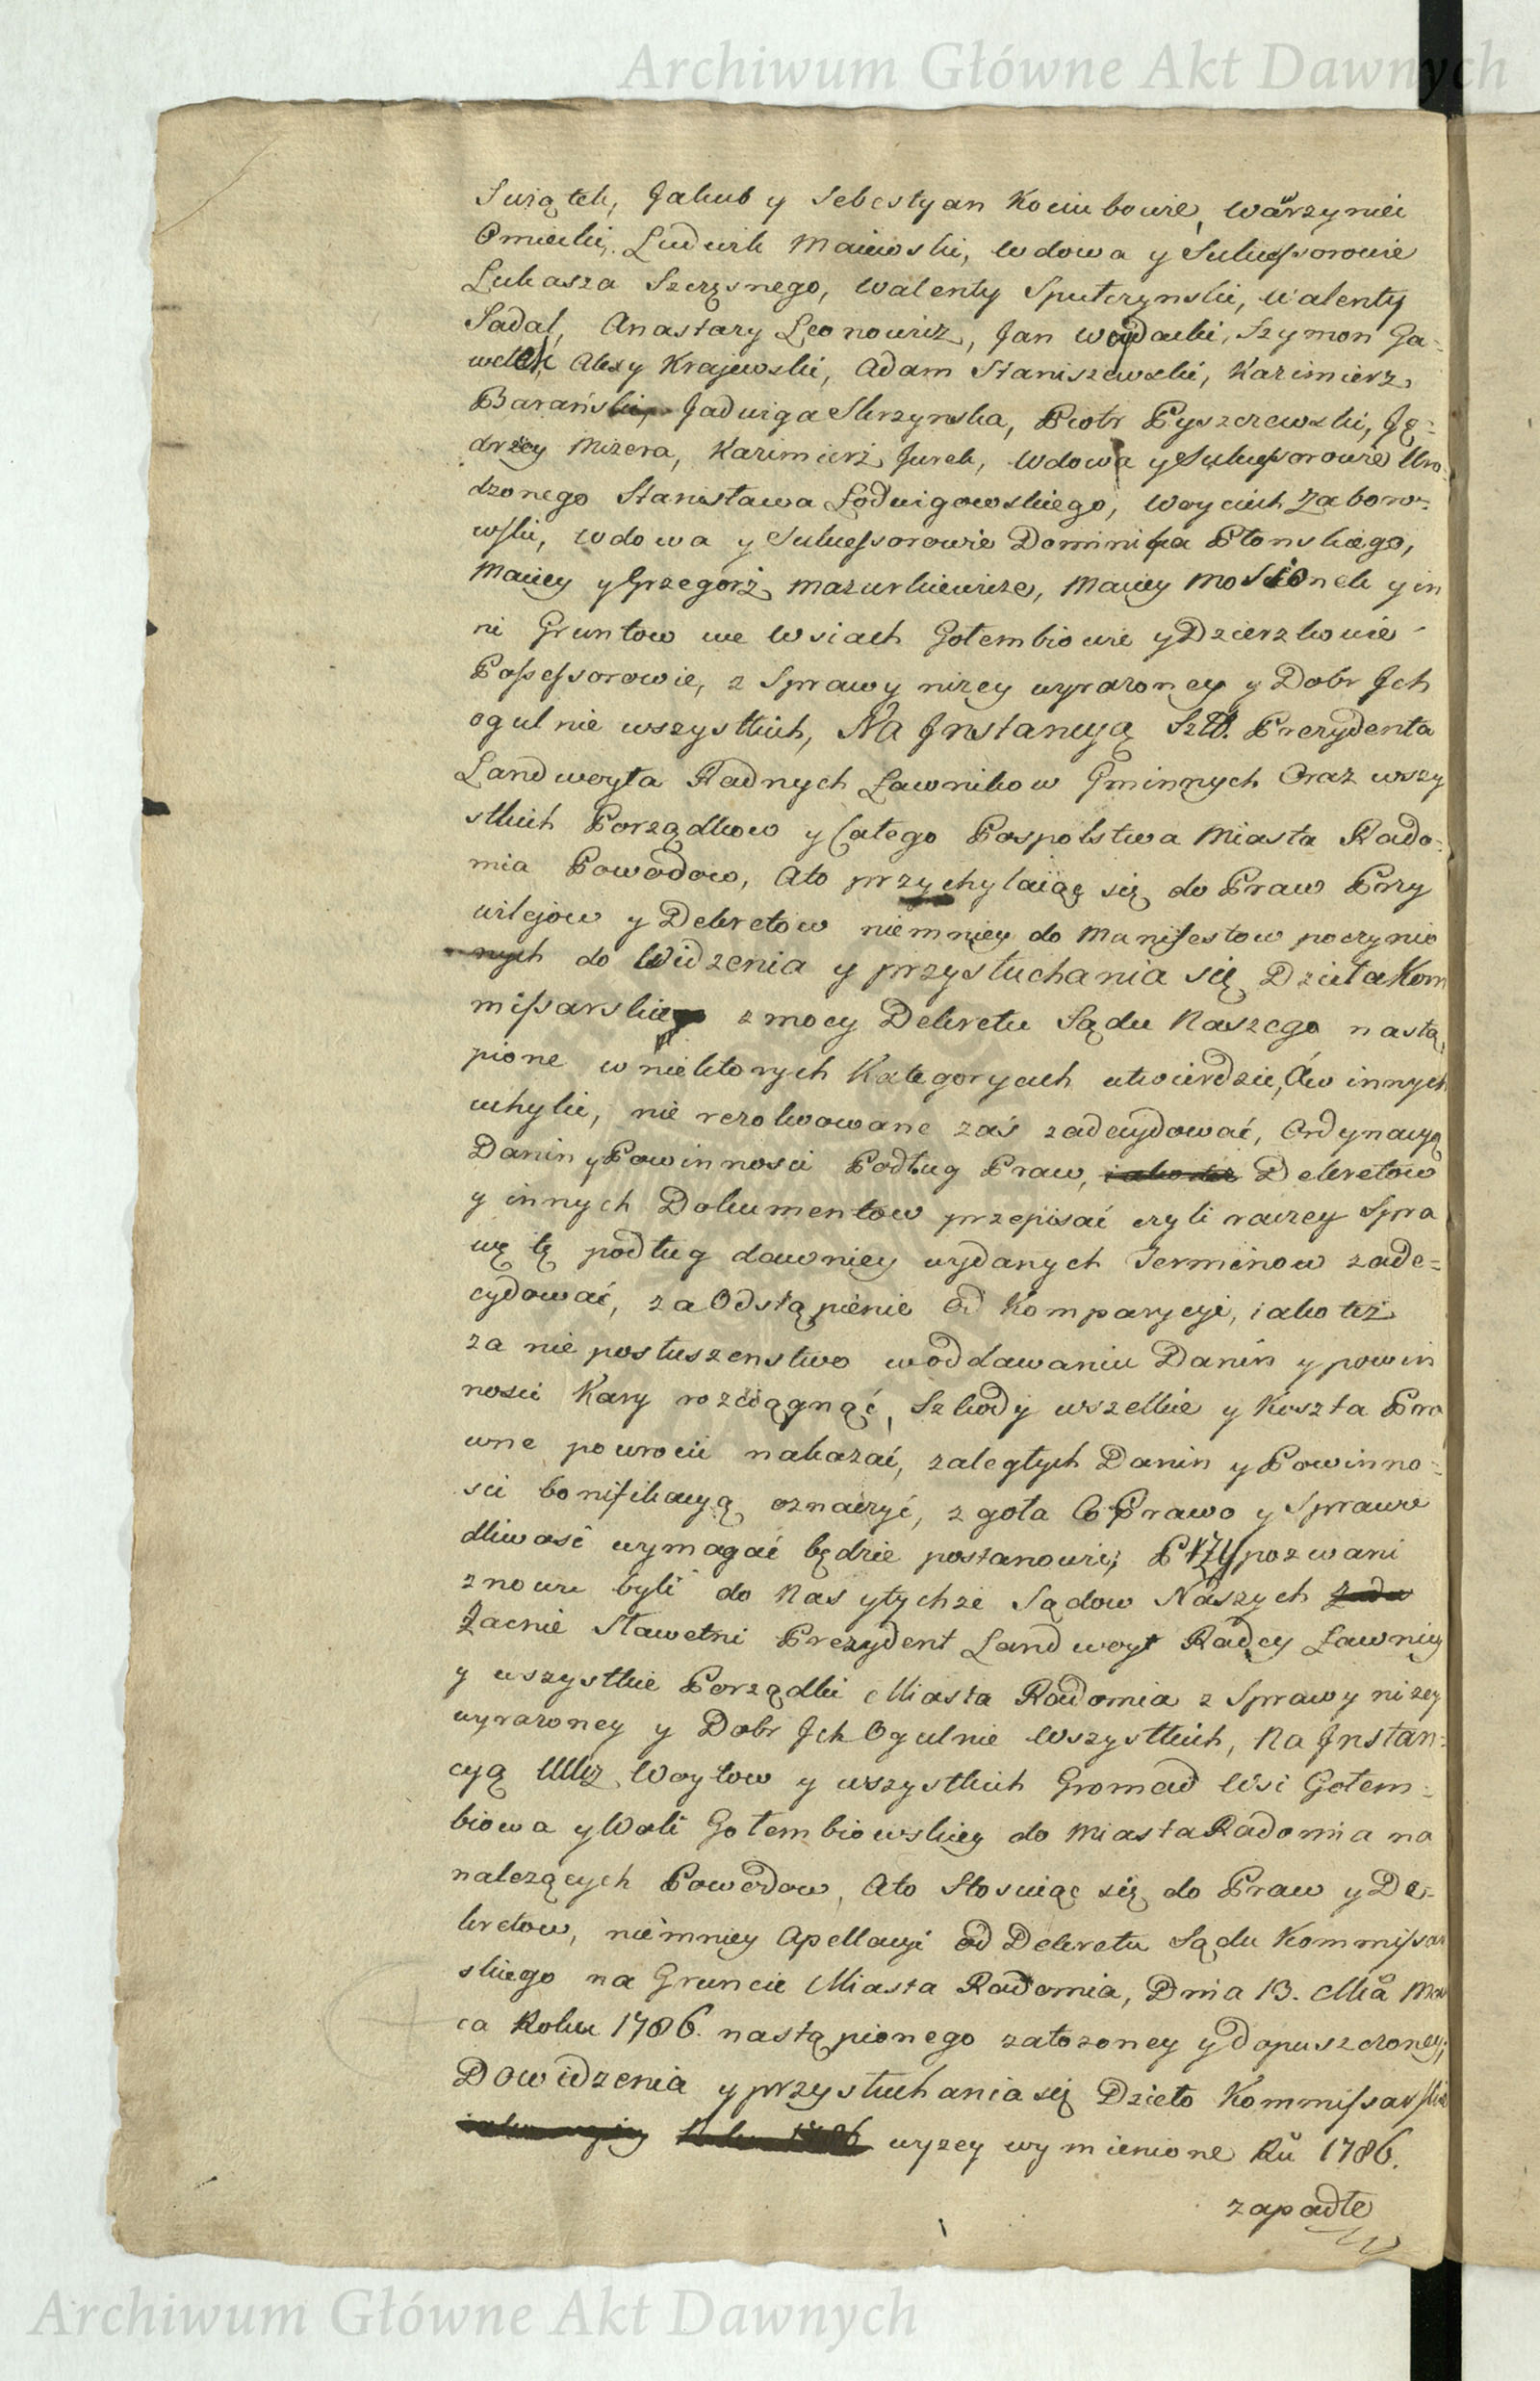 Archiwum Główne Akt Dawnych
Swiątek, Jakub y Sebestyan Kociubowie, Wawrzyniec
Omiecki, Ludwik Maiewski, Wdowa y Sukcessorowie
Lukasza Szczęsnego, Walenty Sputczynski, Walenty
Sadal, Anastazy Leonowicz, Jan Woydacki, Szymon Ga-
welek, Alexy Krajewski, Adam Staniszewski, Kazimierz
Barański, Jadwiga Skrzynska, Piotr Pyszczewski, Ję-
drzey Mizera, Kazimierz Jurek, Wdowa y Sukcessorowie Uro
dzonego Stanisława Łodwigowskiego, Woyciech Zabor-
wski, Wdowa y Sukcessorowie Dominika Płonskiego,
Maciey y Grzegorz Mazurkiewicze, Maciey Mosionek y in
ni Gruntow we Wsiach Gołembiowie y Dzierzkowie
Possessorowie, z Sprawy nizey wyrazoney y Dobr Jch
ogulnie wszystkich, Na Jnstancyą Szl. Prezydenta
Landwoyta Radnych Ławnikow Gminnych Oraz wszy
stkich Porządkow y Całego Pospolstwa Miasta Rado-
mia Powodow, Ato przychylaiąc się do Praw Przy
wilejow y Dekretow niemniey do Manifestow poczynio
nych do Widzenia y przysłuchania się Dzieła Kom
missarskiego z mocy Dekretu Sądu Naszego nastą
pione w niektorych Kategoryach utwierdzic, Aw innych
uchylic, nie rezolwowane zaś zadecydować, Ordynacyą
Danin y Powinnosci Podług Praw, Dekretow
y innych Dokumentow przepisać czyli raczey Spra
wę tę podług dawniey wydanych Terminow zade-
cydować, za Odstąpienie Od Komparycyi, iako też
za nie posłuszenstwo woddawaniu Danin y powin
nosci Kary rozciągnąć, Szkody wszelkie y Koszta Pra
wne powrocić nakazać, zaległych Danin y Powinno-
sci bonifikacyą oznaczyć, zgoła Co Prawo y Sprawie
dliwość wymagać będzie postanowić; Przypozwani
znowu byli do Nas ytychże Sądow Naszych
Zacnie Sławetni Prezydent Landwoyt Radcy Ławnicy
y wszystkie Porządki Miasta Radomia z Sprawy nizey
wyrazoney y Dobr Jch Ogulnie Wszystkich, Na Jnstan-
cyą Woytow y wszystkich Gromad Wsi Gołem-
biowa y Woli Gołembiowskiey do Miasta Radomia na
nalezących Powodow, Ato Stosuiąc się do Praw y De-
kretow, niemniey Apellacyi od Dekretu Sądu Kommissar
skiego na Gruncie Miasta Radomia, Dnia 13. Mca Mar
ca Roku 1786. nastąpionego założoney y dopuszczoney;
Do widzenia y przysłuchania się Dzieło Kommissarskie
wyzey wymienione Ru 1786.
zapadłe
Archiwum Główne Akt Dawnych